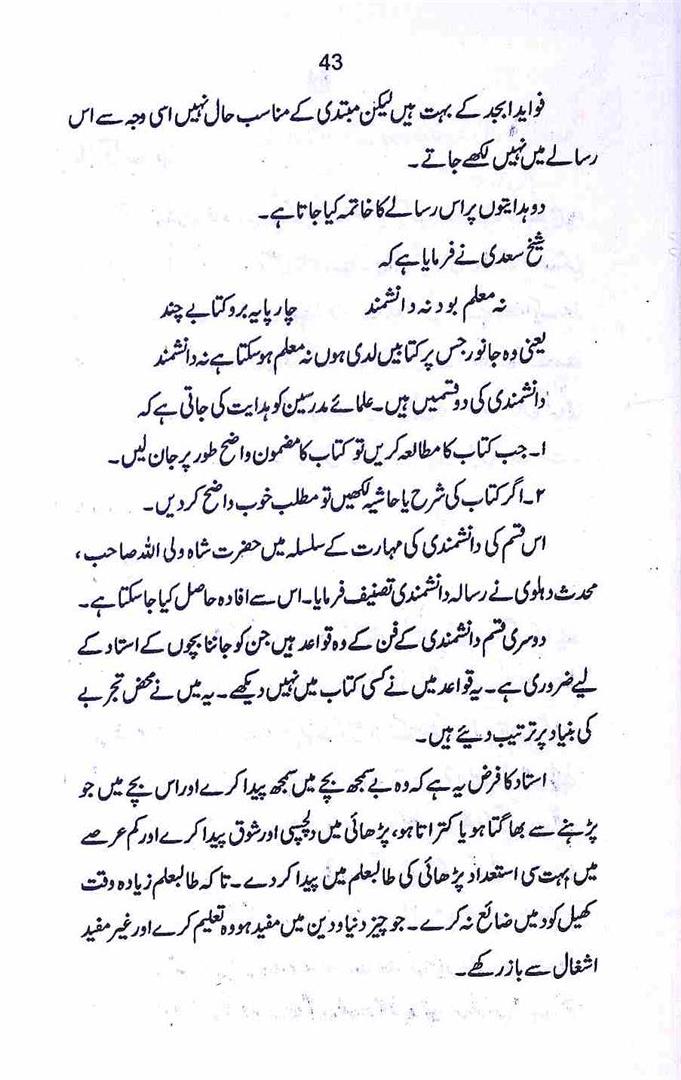 43
فواید ابجد کے بہت ہیں لیکن مبتدی کے مناسب حال نہیں اسی وجہ سے اس
رسالے میں نہیں لکھے جاتے۔
دو ہدایتوں پر اس رسالے کا خاتمہ کیا جاتا ہے۔
شیخ سعدی نے فرمایا ہے کہ
نہ معلم بود نہ دانشمند چار پایہ بروکتابے چند
یعنی وہ جانور جس پر کتابیں لدی ہوں نہ معلم ہوسکتا ہے نہ دانشمند
دانشمندی کی دو قسمیں ہیں۔ علمائے مدرسین کو ہدایت کی جاتی ہے کہ
۱۔ جب کتاب کا مطالعہ کریں تو کتاب کا مضمون واضح طور پر جان لیں۔
۲۔ اگر کتاب کی شرح یا حاشیہ لکھیں تو مطلب خوب واضح کردیں۔
اس قسم کی دانشمندی کی مہارت کے سلسلہ میں حضرت شاہ ولی اللہ صاحب،
محدث دہلوی نے رسالہ دانشمندی تصنیف فرمایا۔ اس سے افادہ حاصل کیا جاسکتا ہے۔
دوسری قسم دانشمندی کے فن کے وہ قواعد ہیں جن کو جاننا بچوں کے استاد کے
لیے ضروری ہے۔ یہ قواعد میں نے کسی کتاب میں نہیں دیکھے۔ یہ میں نے محض تجربے
کی بنیاد پر ترتیب دیئے ہیں۔
استاد کا فرض یہ ہے کہ وہ بے سمجھ بچے میں سمجھ پیدا کرے اور اس بچے میں جو
پڑہنے سے بھاگتا ہو یا کتراتا ہو، پڑھائی میں دلچسپی اور شوق پیدا کرے اور کم عرصے
میں بہت سی استعداد پڑھائی کی طالبعلم میں پیدا کردے۔ تاکہ طالبعلم زیادہ وقت
کھیل کود میں ضائع نہ کرے۔ جو چیز دنیا و دین میں مفید ہو وہ تعلیم کرے اور غیر مفید
اشغال سے باز رکھے۔